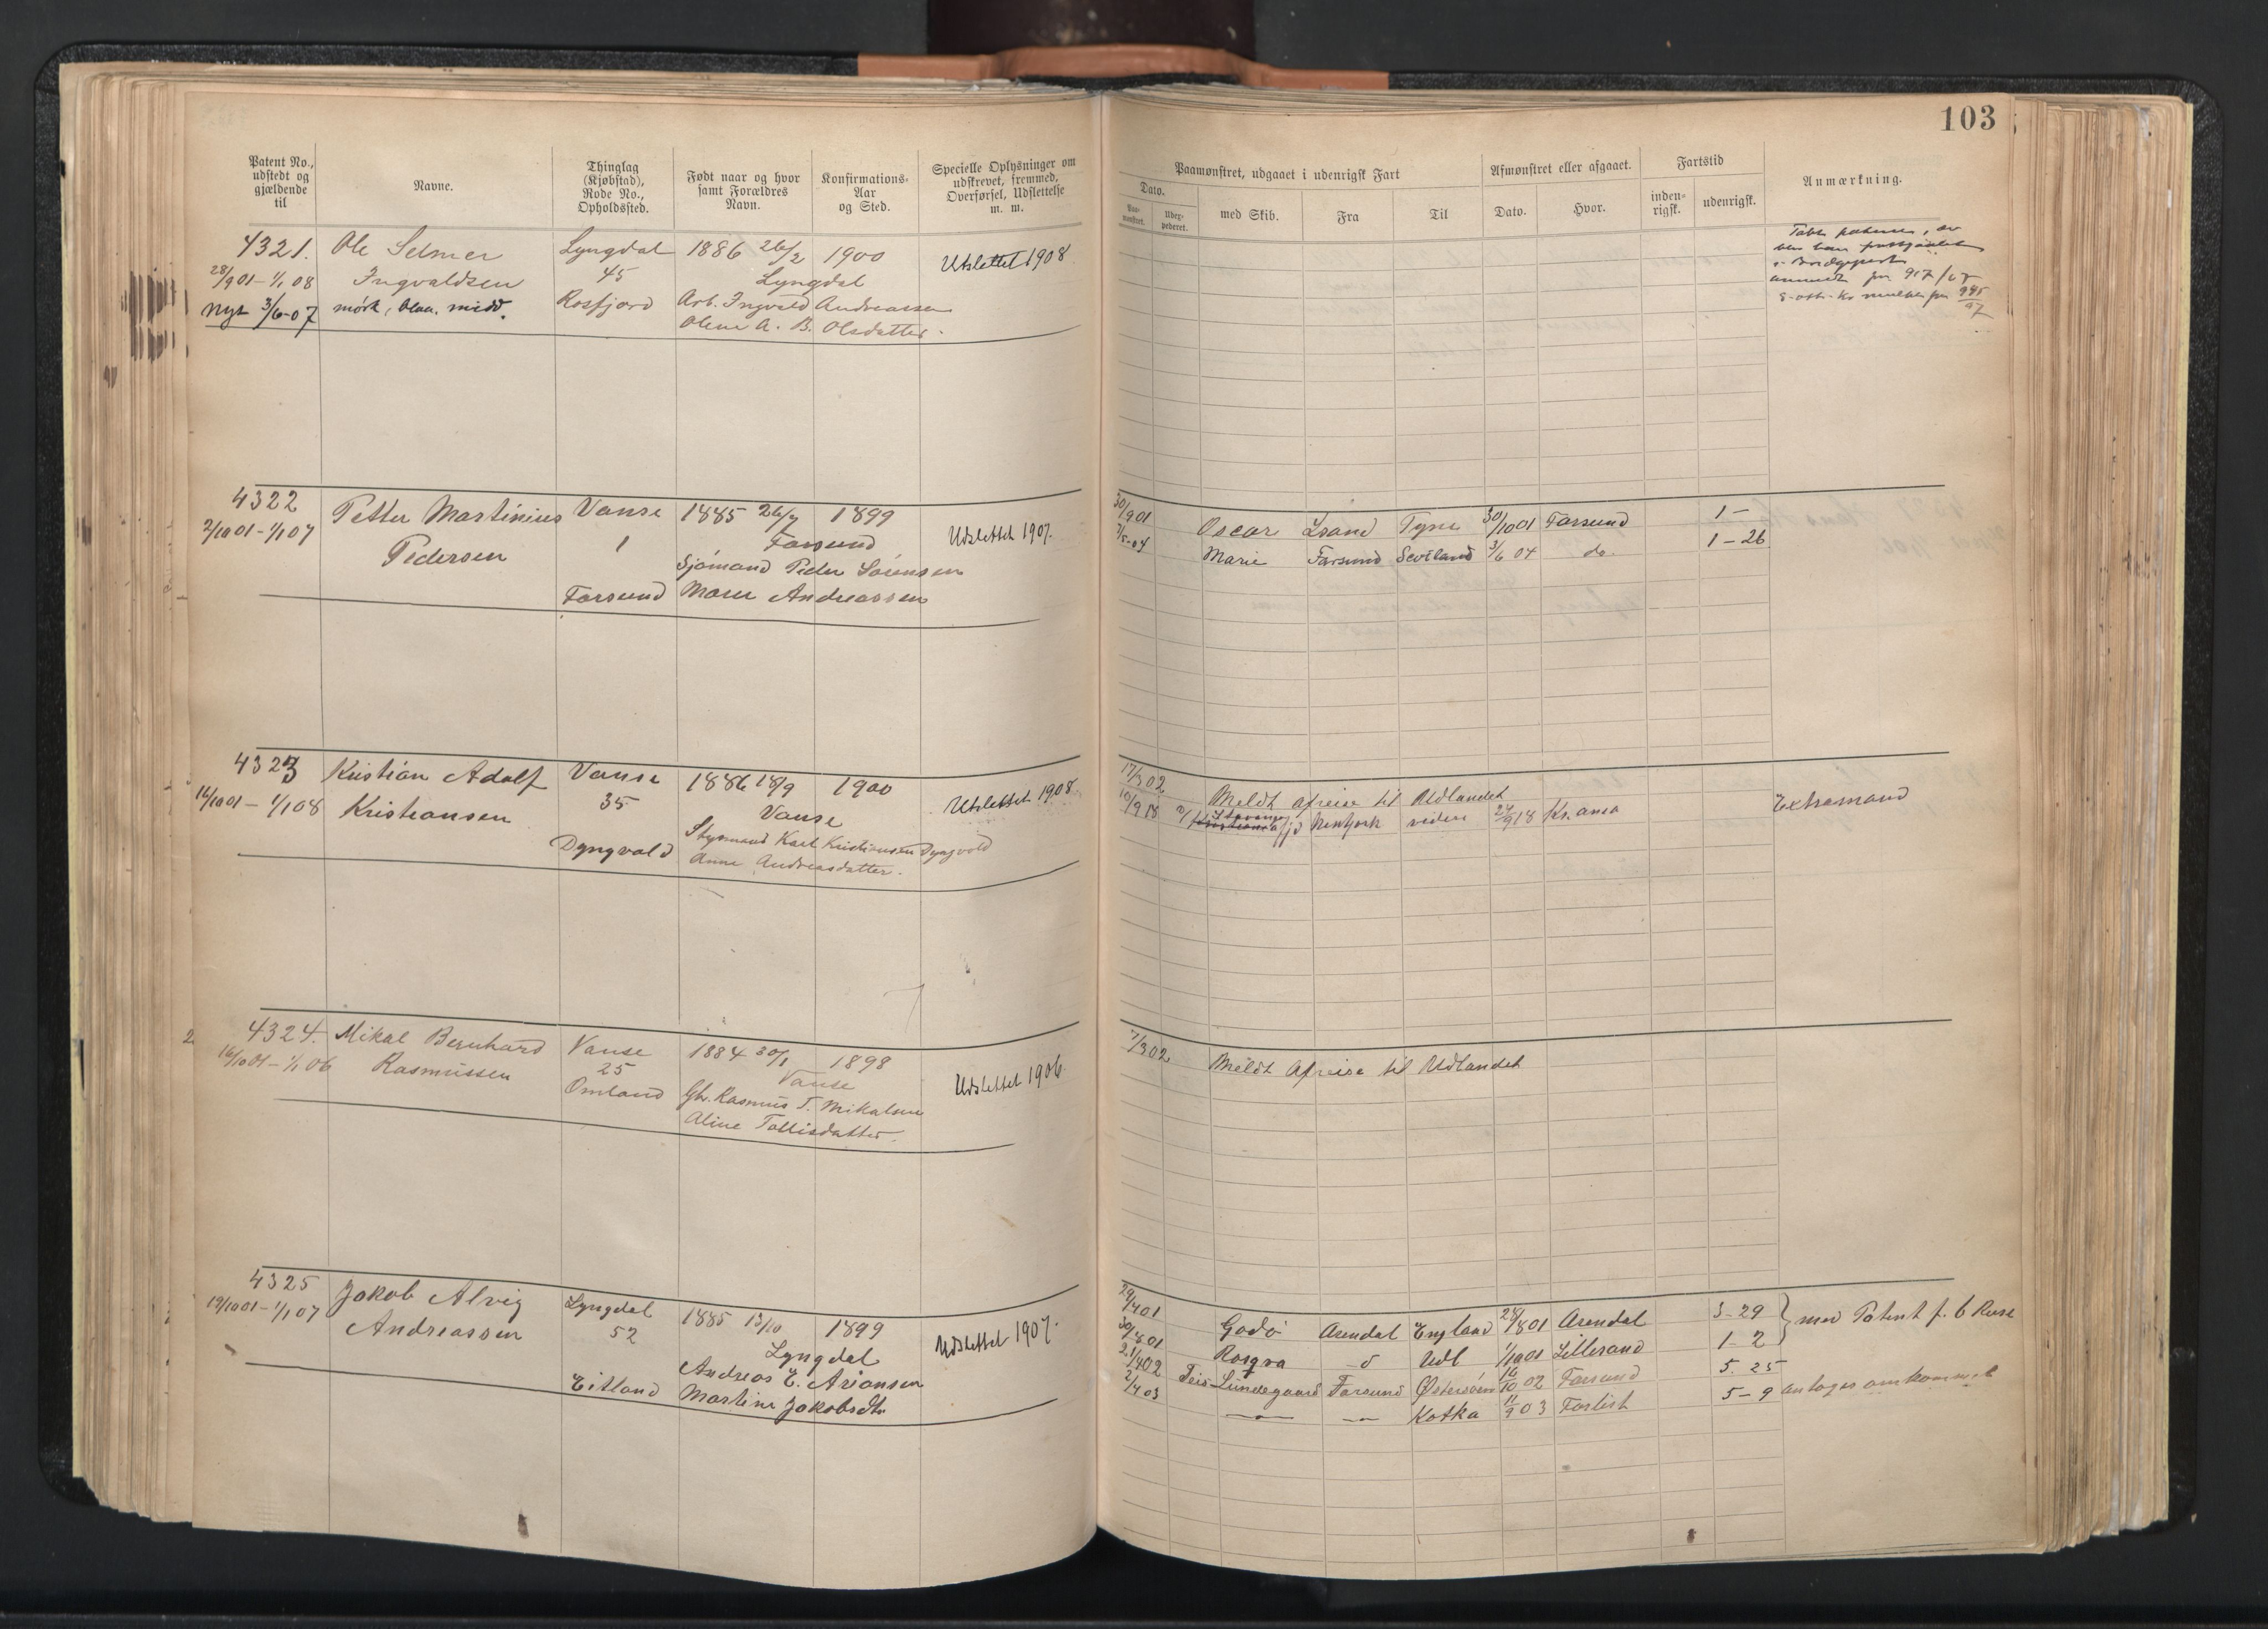 103
Patent No., udstedt og gjældende til
Navne.
Thinglag (Kjøbstad), Rode No., Opholdssted.
Født naar og hvor samt Forældres Navn.
Konfirmations-Aar og Sted.
Specielle Oplysninger om udskrevet, fremmed, Overførsel, Udslettelse m. m.
Paamønstret, udgaaet i udenrigsk Fart
Afmønstret eller afgaaet.
Fartstid
Anmærkning.
Dato.
Paa-mønstret.
Udex-pederet.
med Skib.
Fra
Til
Dato.
Hvor.
inden-rigsk.
udenrigsk.
4321. Ole Selmer Lyngdal 1886 26/2 1900 Utslettet 1908
28/9 01 - 1/1 08 Ingvaldsen 45 Lyngdal
Nyt 3/6-07 mørk, blaa, midd. Rosfjord Arb. Ingvald Andreassen
Olene A. B. Olsdatter.
4322 Petter Martinius Vanse 1885 26/7 1899 Udslettet 1907.
2/10 01 - 1/1 07 Pedersen 1 Farsund
Sjømand Peder Sørensen
Farsund Maren Andreassen
30/9 01 Oscar Lsand Tyne 30/10 01 Farsund 1 -
7/5-04 Marie Farsund Scotland 3/6 04 do. 1 - 26
4323 Kristian Adolf Vanse 1886 18/9 1900 Utslettet 1908
16/10 01 - 1/1 08 Kristiansen 35 Vanse
Dyngvold Styrmand Karl Kristiansen Dyngvold
Anne Andreasdatter.
17/3 02 Meldt afreise til Udlandet
10/9 18 Stavanger fjd NewYork videre 24/9 18 Kr. ansa Extramand
4324. Mikal Bernhard Vanse 1884 30/1 1898 Udslettet 1906.
16/10 01 - 1/1 06 Rasmussen 25 Vanse
Omland Gb. Rasmus T. Mikalsen
Aline Tollisdatter.
7/3 02 Meldt Afreise til Udlandet
4325 Jakob Alvig Lyngdal 1885 13/10 1899 Udslettet 1907.
19/10 01 - 1/1 07 Andreassen 52 Lyngdal
Andreas E. Arianson
Eitland Martine Jakobsdtr
29/4 01 Godø Arendal England 28/8 01 Arendal 3 - 29 } med Patent f. 6 Reise
30/8 01 Rosqva do Udl 1/10 01 Lillesand 1 - 2
21/4 02 Teis Lundegaard Farsund Østersøen 16/10 02 Farsund 5. 25
2/4 03 — — Kotka 11/9 03 Forlist 5 - 9 antages omkommet